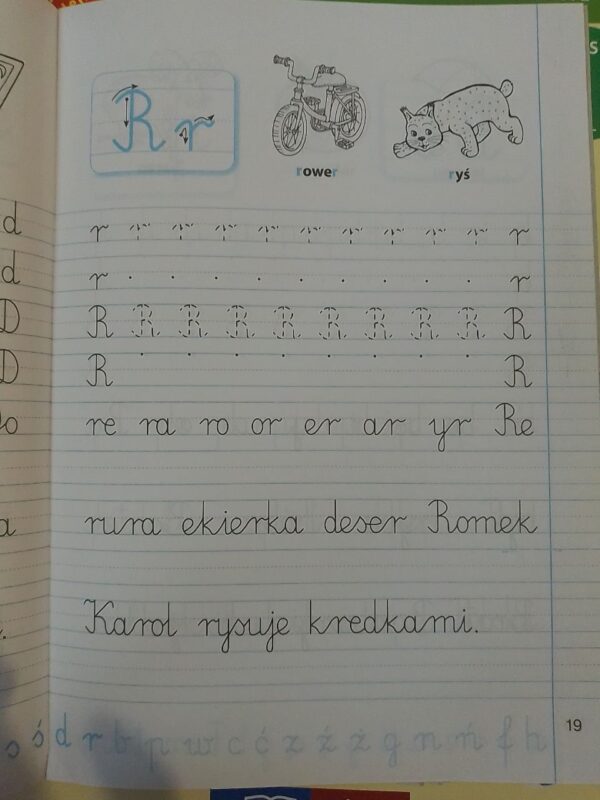 R r
rower ryś
r r r r r r r r r r
r r
R R R R R R R R R R
R R
re ra ro or er ar yr Re
rura ekierka deser Romek
Karol rysuje kredkami.
19
ś d r b p w c ć z ź ż g n ń f h